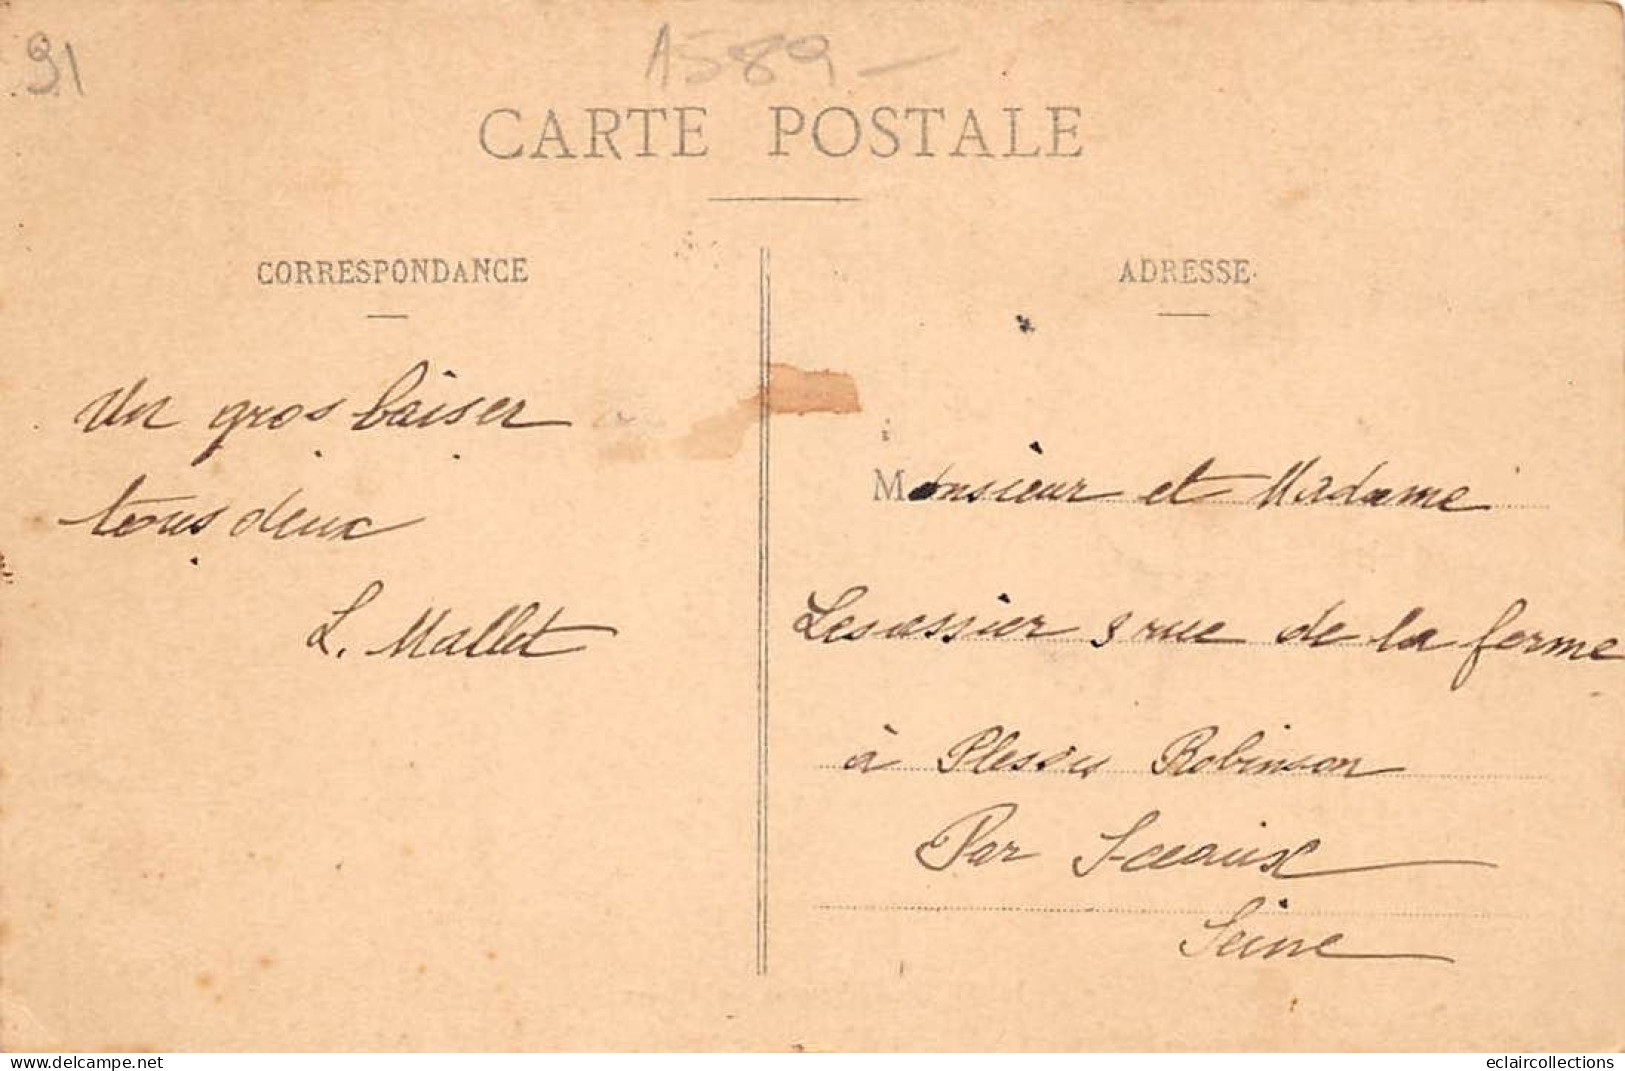 91
A589 -
CARTE POSTALE
CORRESPONDANCE
ADRESSE.
Un gros baiser
tous deux
L. Mallet
Monsieur et Madame
Lesassier 3 rue de la ferme
à Plessis Robinson
Par Sceaux
Seine
delcampe.net
eclaircollections